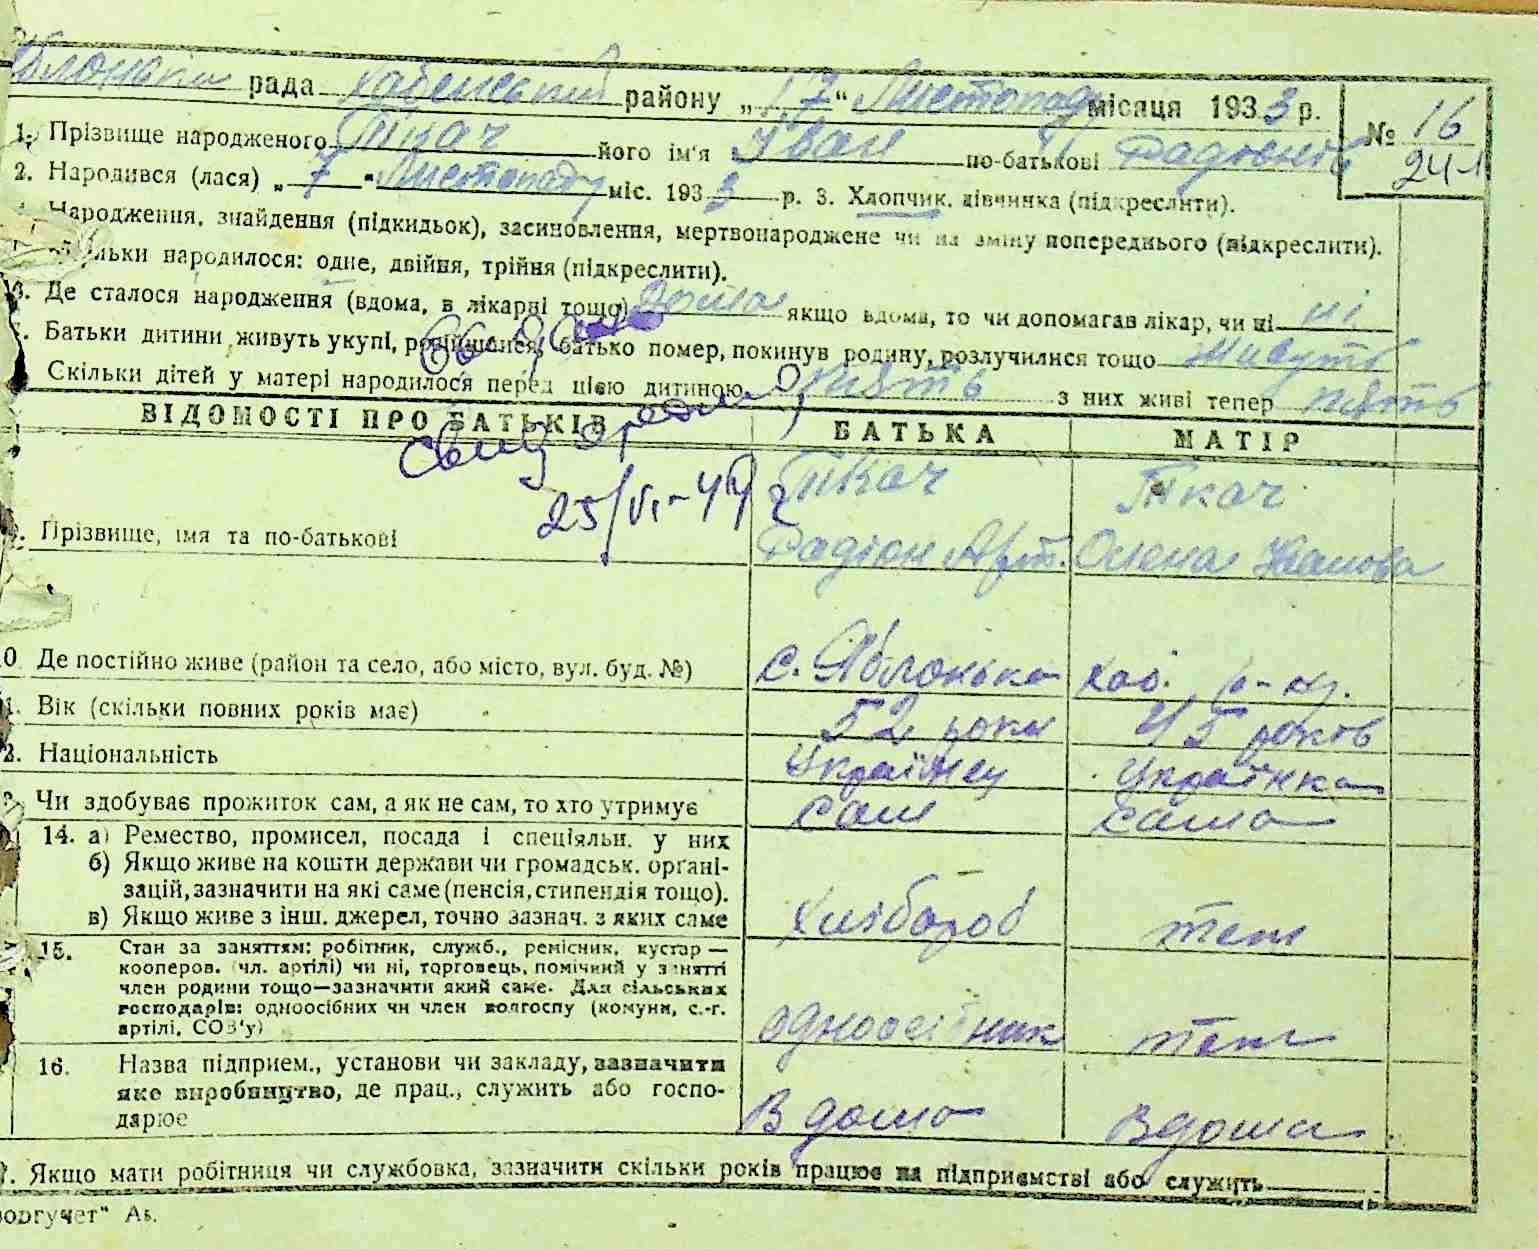 Яблонька рада Хабенський району „17“ Листопаду місяця 1933 р.
№ 16
24-1
1. Прізвище народженого Ткач його ім'я Іван по-батькові Радіонов
2. Народився (лася) „7“ Листопаду міс. 1933 р. 3. Хлопчик, дівчинка (підкреслити).
Народження, знайдення (підкидьок), засиновлення, мертвонароджене чи на зміну попереднього (підкреслити).
народилося: одне, двійня, трійня (підкреслити).
6. Де сталося народження (вдома, в лікарні тощо) Вдома якщо вдома, то чи допомагав лікар, чи ні ні
Батьки дитини живуть укупі, розійшлися, батько помер, покинув родину, розлучилися тощо Живуть
Скільки дітей у матері народилося перед цією дитиною пять з них живі тепер пять
ВІДОМОСТІ ПРО БАТЬКІВ БАТЬКА МАТІР
25/VI-49 г
Прізвище, імя та по-батькові Ткач Радіон Арт. Ткач Олена Іванова
10 Де постійно живе (район та село, або місто, вул. буд. №) с. Яблонька Хаб. р-ну.
11. Вік (скільки повних років має) 52 роки 45 років
12. Національність Українец Українка
Чи здобуває прожиток сам, а як не сам, то хто утримує сам сама
14. а) Ремество, промисел, посада і спеціяльн. у них
б) Якщо живе на кошти держави чи громадськ. органі-
зацій, зазначити на які саме (пенсія, стипендія тощо).
в) Якщо живе з інш. джерел, точно зазнач. з яких саме Хлібороб теж
15. Стан за заняттям: робітник, служб., ремісник, кустар —
кооперов. (чл. артілі) чи ні, торговець, помічний у занятті
член родини тощо—зазначити який саме. Для сільських
господарів: одноосібних чи член колгоспу (комуни, с.-г.
артілі, СОЗ'у) одноосібник теж
16. Назва підприєм., установи чи закладу, зазначити
яке виробництво, де прац., служить або госпо-
дарює Вдома Вдома
17. Якщо мати робітниця чи службовка, зазначити скільки років працює на підприємстві або служить